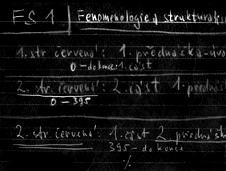 FS 1 Fenomenologie a struktural
1. str. červená: 1. přednáška - dvo
0 - do konce: 1. část
2. str. červená: 2. část 1. předná
0 - 395
2. str. červená: 1. část 2. přednášk
395 - do konce